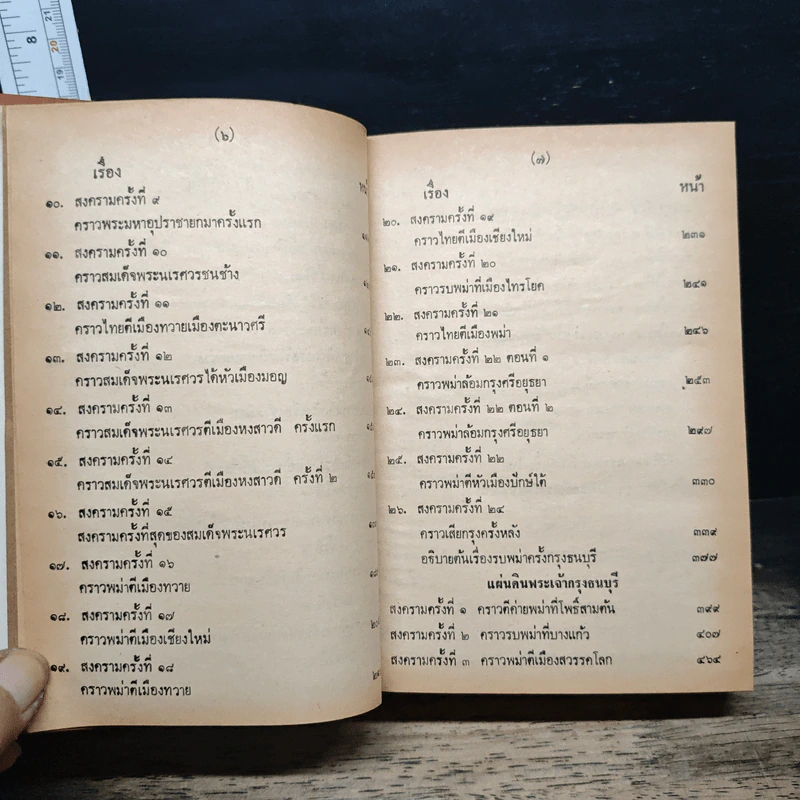 (๖)
เรื่อง
๑๐. สงครามครั้งที่ ๙
คราวพระมหาอุปราชายกมาครั้งแรก
๑๑. สงครามครั้งที่ ๑๐
คราวสมเด็จพระนเรศวรชนช้าง
๑๒. สงครามครั้งที่ ๑๑
คราวไทยตีเมืองทวายเมืองตะนาวศรี
๑๓. สงครามครั้งที่ ๑๒
คราวสมเด็จพระนเรศวรได้หัวเมืองมอญ
๑๔. สงครามครั้งที่ ๑๓
คราวสมเด็จพระนเรศวรตีเมืองหงสาวดี ครั้งแรก
๑๕. สงครามครั้งที่ ๑๔
คราวสมเด็จพระนเรศวรตีเมืองหงสาวดี ครั้งที่ ๒
๑๖. สงครามครั้งที่ ๑๕
สงครามครั้งที่สุดของสมเด็จพระนเรศวร
๑๗. สงครามครั้งที่ ๑๖
คราวพม่าตีเมืองทวาย
๑๘. สงครามครั้งที่ ๑๗
คราวพม่าตีเมืองเชียงใหม่
๑๙. สงครามครั้งที่ ๑๘
คราวพม่าตีเมืองทวาย
(๗)
เรื่อง หน้า
๒๐. สงครามครั้งที่ ๑๙
คราวไทยตีเมืองเชียงใหม่ ๒๓๑
๒๑. สงครามครั้งที่ ๒๐
คราวรบพม่าที่เมืองไทรโยค ๒๔๑
๒๒. สงครามครั้งที่ ๒๑
คราวไทยตีเมืองพม่า ๒๔๖
๒๓. สงครามครั้งที่ ๒๒ ตอนที่ ๑
คราวพม่าล้อมกรุงศรีอยุธยา ๒๕๓
๒๔. สงครามครั้งที่ ๒๒ ตอนที่ ๒
คราวพม่าล้อมกรุงศรีอยุธยา ๒๙๗
๒๕. สงครามครั้งที่ ๒๒
คราวพม่าตีหัวเมืองปักษ์ใต้ ๓๓๐
๒๖. สงครามครั้งที่ ๒๔
คราวเสียกรุงครั้งหลัง ๓๓๙
อธิบายต้นเรื่องรบพม่าครั้งกรุงธนบุรี ๓๗๗
แผ่นดินพระเจ้ากรุงธนบุรี
สงครามครั้งที่ ๑ คราวตีค่ายพม่าที่โพธิ์สามต้น ๓๙๙
สงครามครั้งที่ ๒ คราวรบพม่าที่บางแก้ว ๔๐๗
สงครามครั้งที่ ๓ คราวพม่าตีเมืองสวรรคโลก ๔๖๕
8
21
20
19